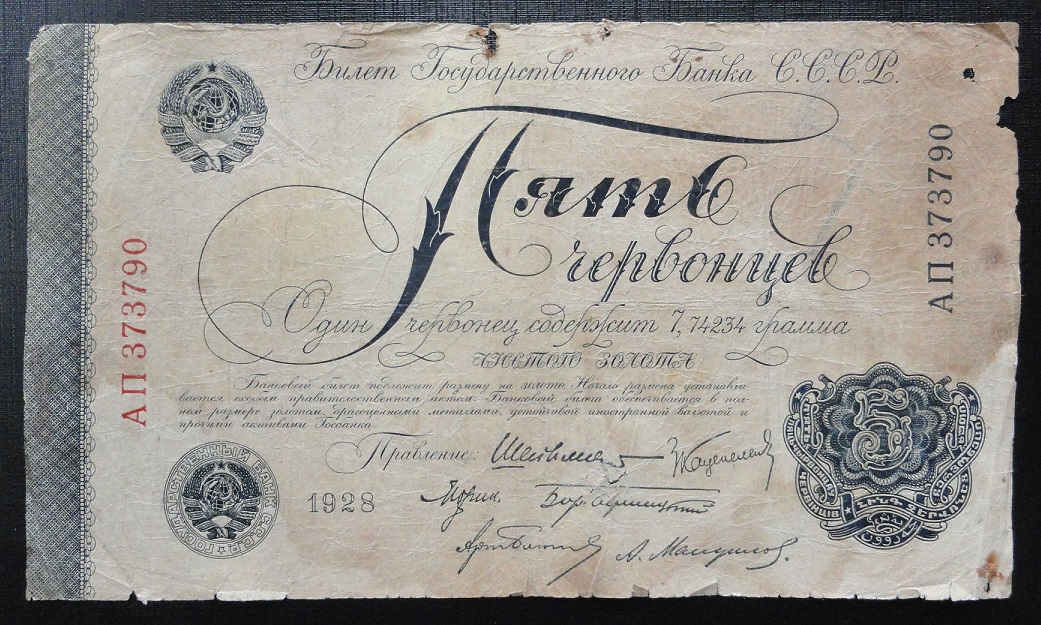 Билет Государственного Банка С.С.С.Р.
Пять
червонцев
АП 373790
АП 373790
Один червонец содержит 7,74234 грамма
ЧИСТОГО ЗОЛОТА
Банковый билет подлежит размену на золото. Начало размена устанавли-
вается особым правительственным актом. Банковый билет обеспечивается в пол-
ном размере золотом, драгоценными металлами, устойчивой иностранной валютой и
прочими активами Госбанка.
Правление:
1928
ГОСУДАРСТВЕННЫЙ БАНК С.С.С.Р.
5